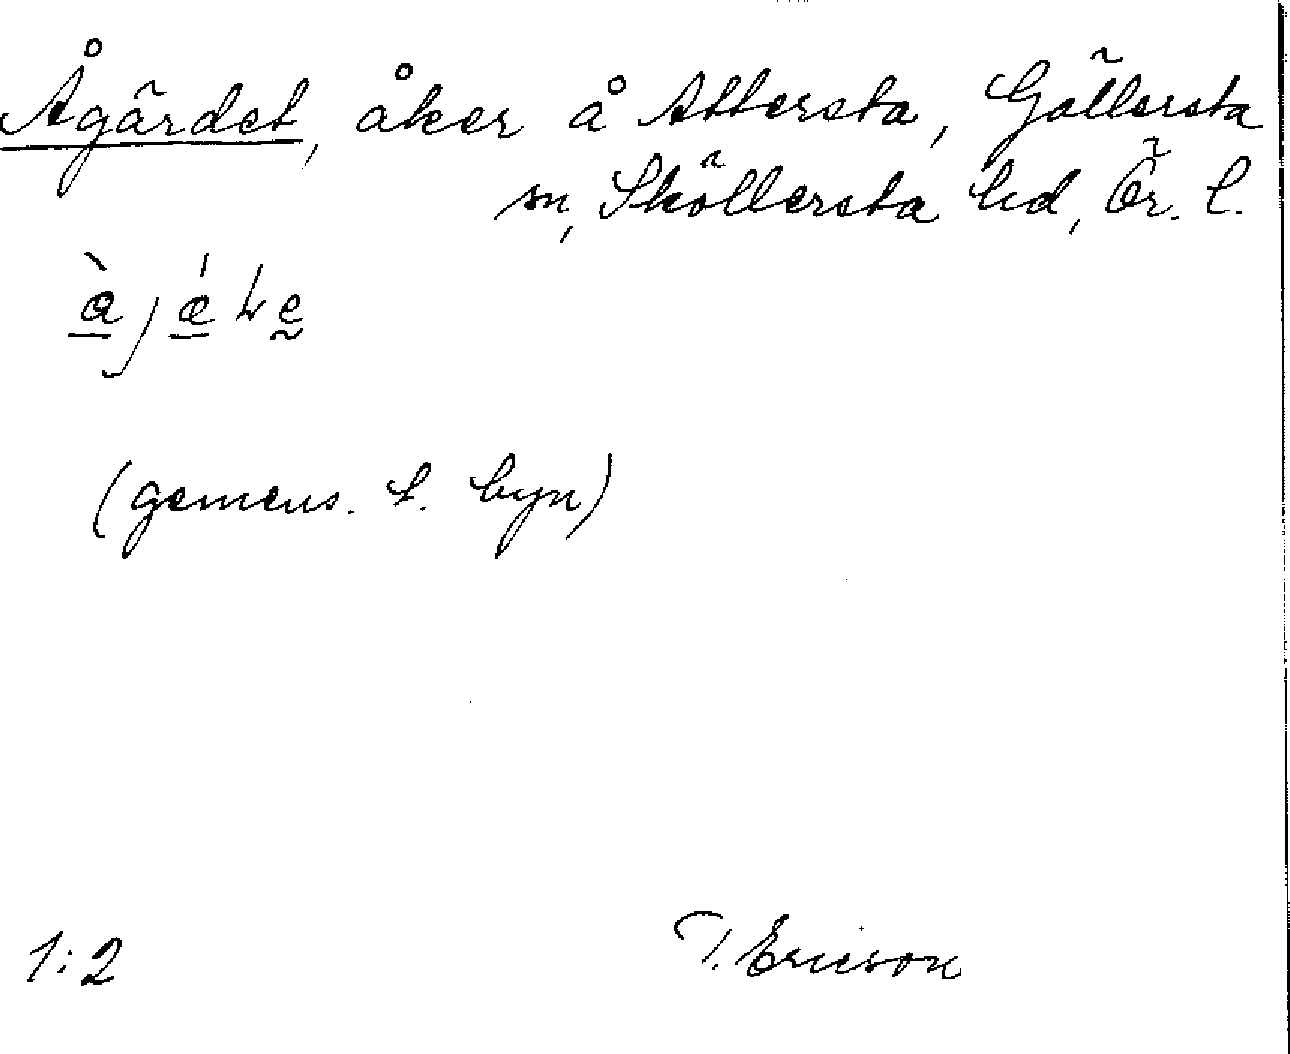 Ågärdet, åker å Attersta, Gällersta
sn, Sköllersta hd, Ör. l.
(gemens. f. byn)
1:2
T. Ericson